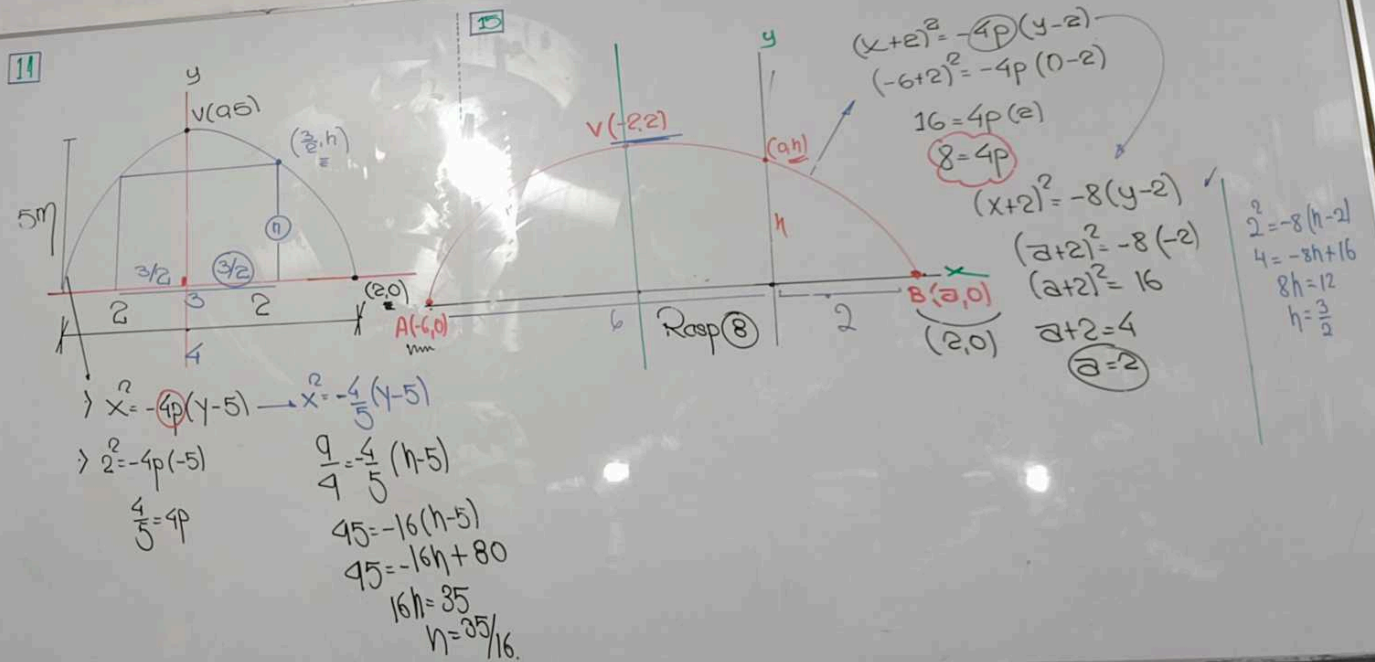 11
y
V(0,5)
(3/2, h)
5m
h
3/2
3/2
2
3
2
(2,0)
4
x² = -4p(y-5) → x² = -4/5(y-5)
2² = -4p(-5)
4/5 = 4p
9/4 = -4/5(h-5)
45 = -16(h-5)
45 = -16h + 80
16h = 35
h = 35/16.
15
y
V(-2,2)
(0,h)
h
x
A(-6,0)
6
Rasp 8
2
B(a,0)
(2,0)
(x+2)² = -4p(y-2)
(-6+2)² = -4p(0-2)
16 = 4p(2)
8 = 4p
(x+2)² = -8(y-2)
(a+2)² = -8(-2)
(a+2)² = 16
a+2 = 4
a = 2
2² = -8(h-2)
4 = -8h+16
8h = 12
h = 3/2